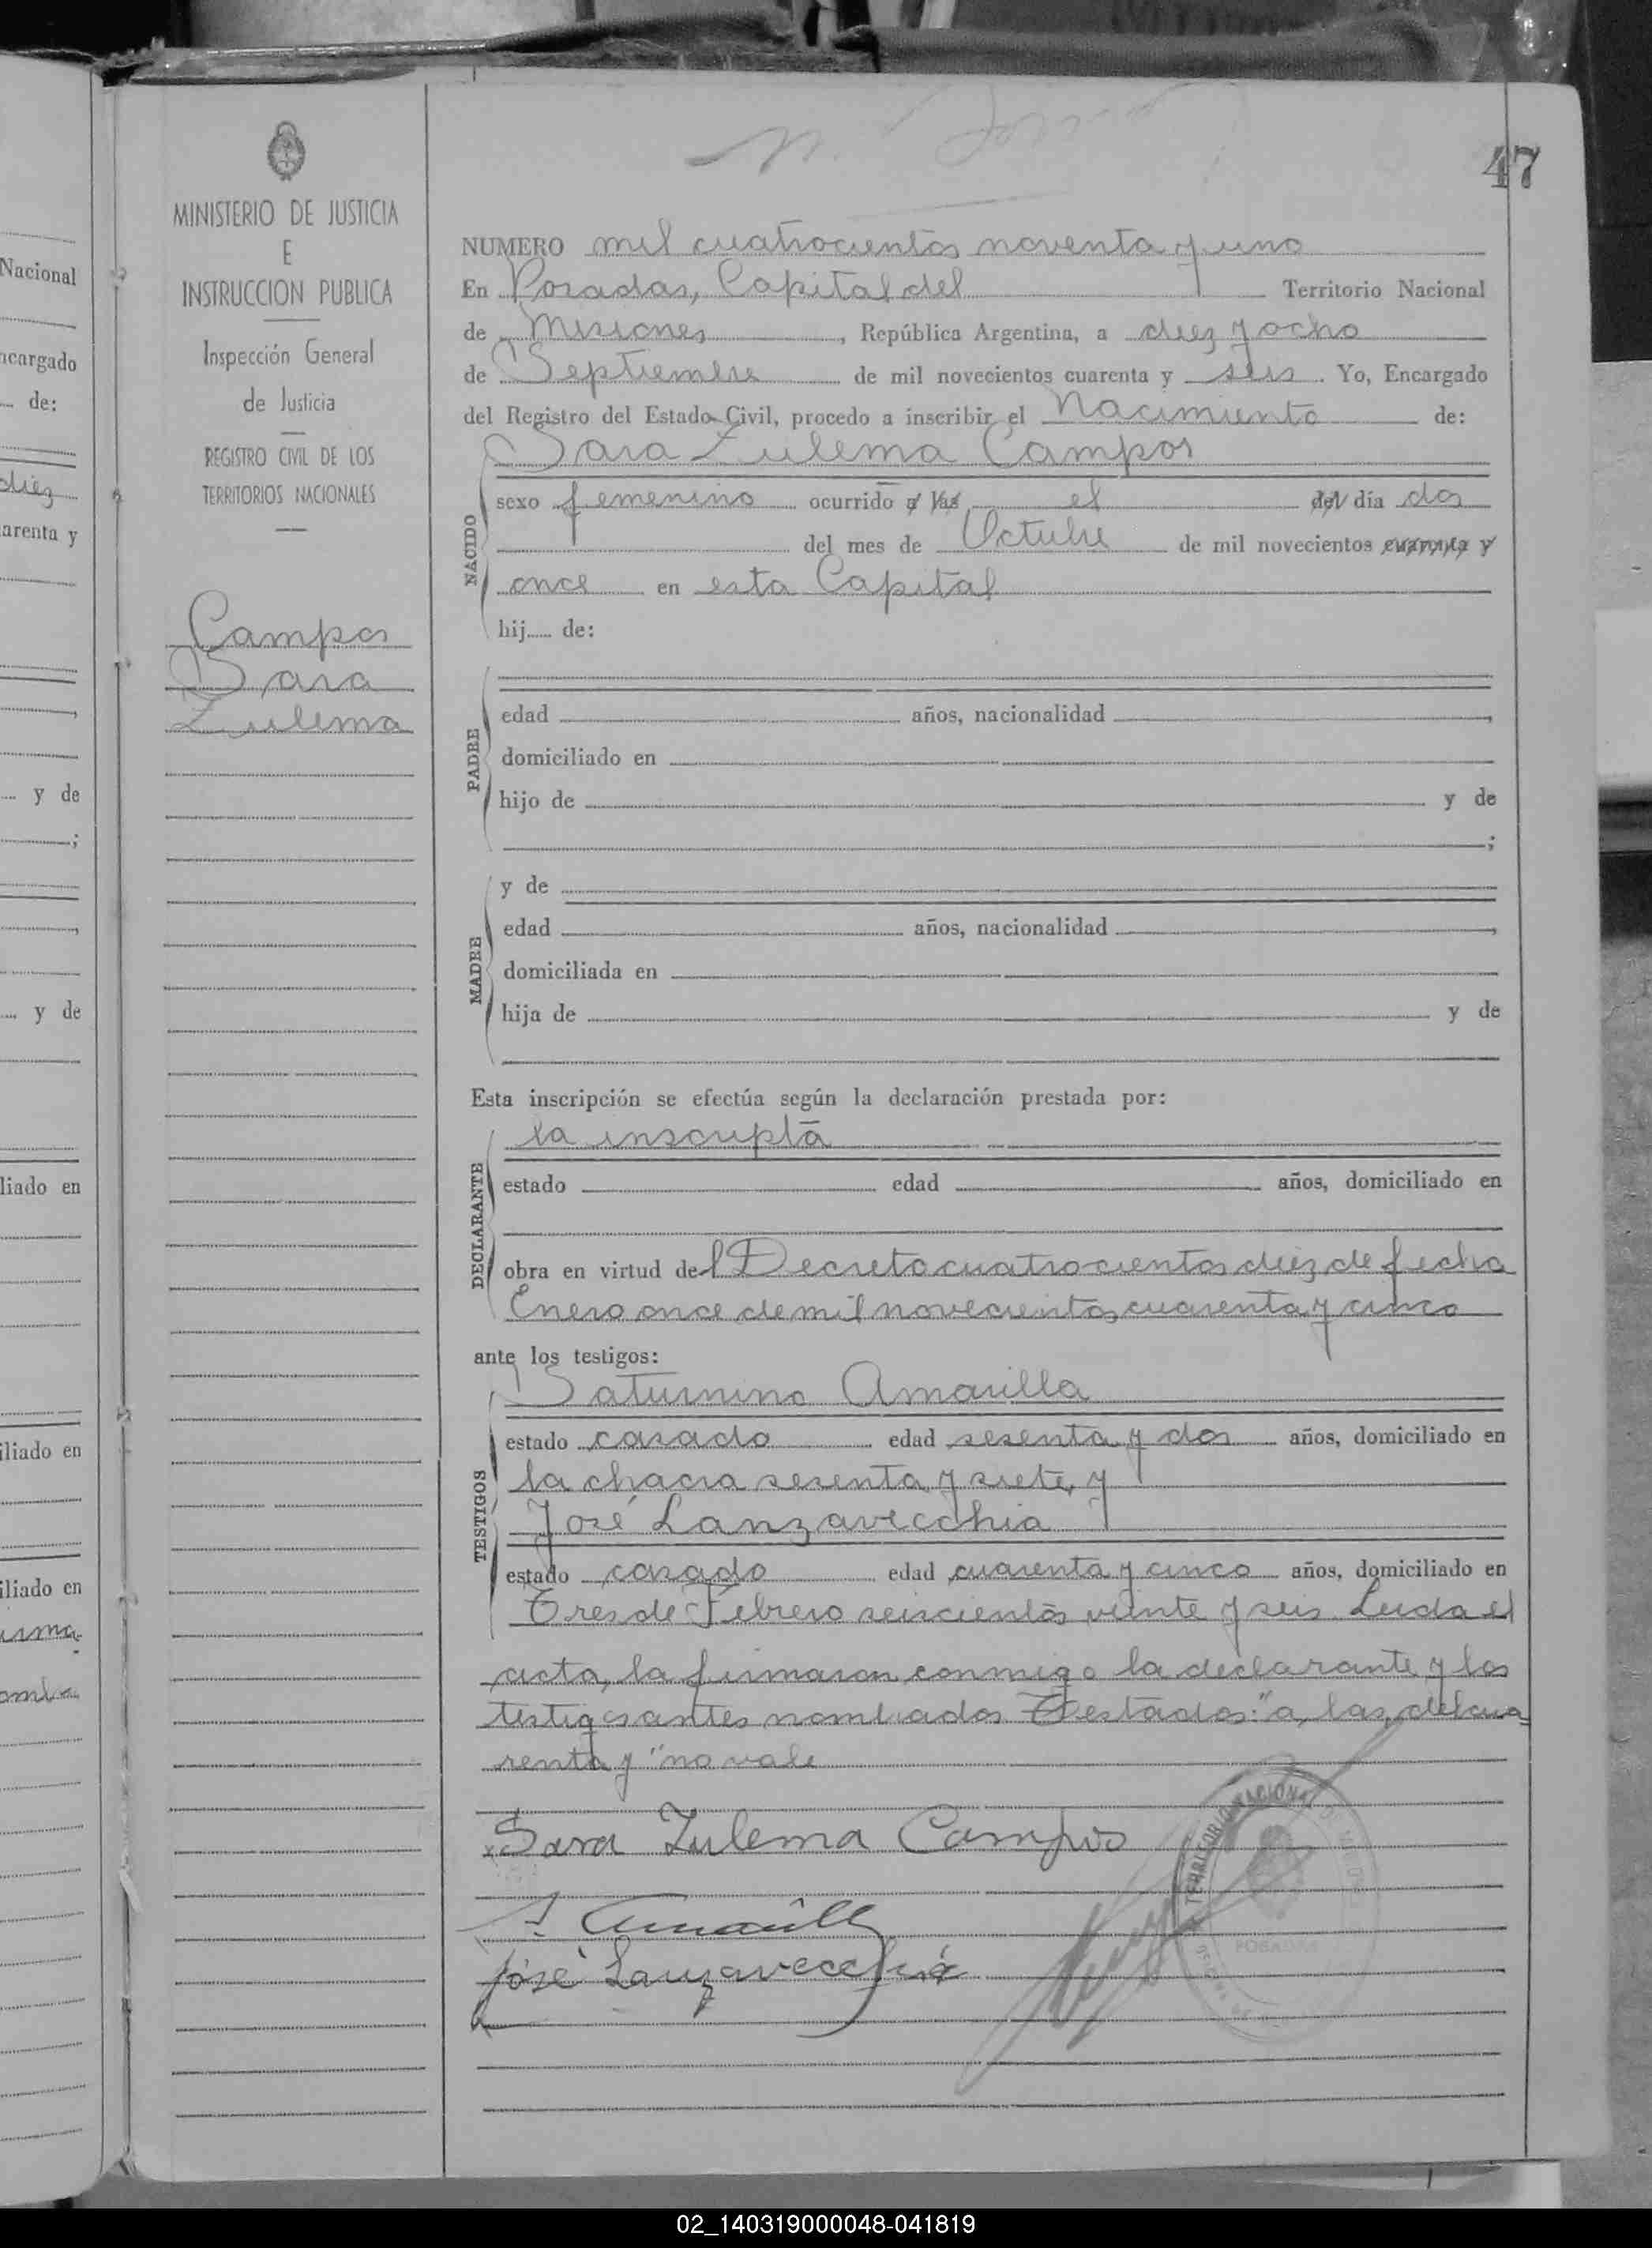 47
MINISTERIO DE JUSTICIA
E
INSTRUCCION PUBLICA
Inspección General
de Justicia
REGISTRO CIVIL DE LOS
TERRITORIOS NACIONALES
Campos
Sara
Zulema
NUMERO mil cuatrocientos noventa y uno
En Posadas, Capital del Territorio Nacional
de Misiones, República Argentina, a diez y ocho
de Septiembre de mil novecientos cuarenta y seis. Yo, Encargado
del Registro del Estado Civil, procedo a inscribir el Nacimiento de:
Sara Zulema Campos
NACIDO
sexo femenino ocurrido a las el del día dos
del mes de Octubre de mil novecientos cuarenta y
once en esta Capital
hij..... de:
PADRE
edad años, nacionalidad
domiciliado en
hijo de y de
;
MADRE
y de
edad años, nacionalidad
domiciliada en
hija de y de
Esta inscripción se efectúa según la declaración prestada por:
DECLARANTE
la inscripta
estado edad años, domiciliado en
obra en virtud del Decreto cuatrocientos diez de fecha
Enero once de mil novecientos cuarenta y cinco
ante los testigos:
TESTIGOS
Saturnino Amarilla
estado casado edad sesenta y dos años, domiciliado en
la chacra sesenta y siete, y
José Lanzavecchia
estado casado edad cuarenta y cinco años, domiciliado en
Tres de Febrero seiscientos veinte y seis Leida el
acta, la firmaron conmigo la declarante y los
testigos antes nombrados Testados: "a, las, del cua=
renta y" no vale
Sara Zulema Campos
S. Amarilla
José Lanzavecchia
POSADAS
Nacional
ncargado
de:
diez
arenta y
y de
;
y de
liado en
iliado en
iliado en
02_140319000048-041819